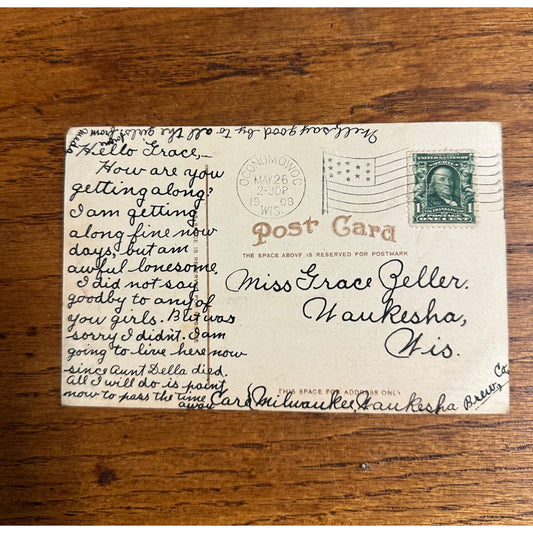 Well, say good-by to all the girls for me from
Meda
Hello Grace,—
How are you
getting along?
I am getting
along fine now
days, but am
awful lonesome.
I did not say
goodby to any of
you girls. But was
sorry I didn't. I am
going to live here now
since Aunt Della died.
all I will do is paint
now to pass the time
away.
OCONOMOWOC
MAY 26
2-30P
1908
WIS.
UNITED STATES
1
Post Card
THE SPACE ABOVE IS RESERVED FOR POSTMARK
Miss Grace Zeller.
Waukesha,
Wis.
THIS SPACE FOR ADDRESS ONLY
Care, Milwaukee, Waukesha Brew, Co.